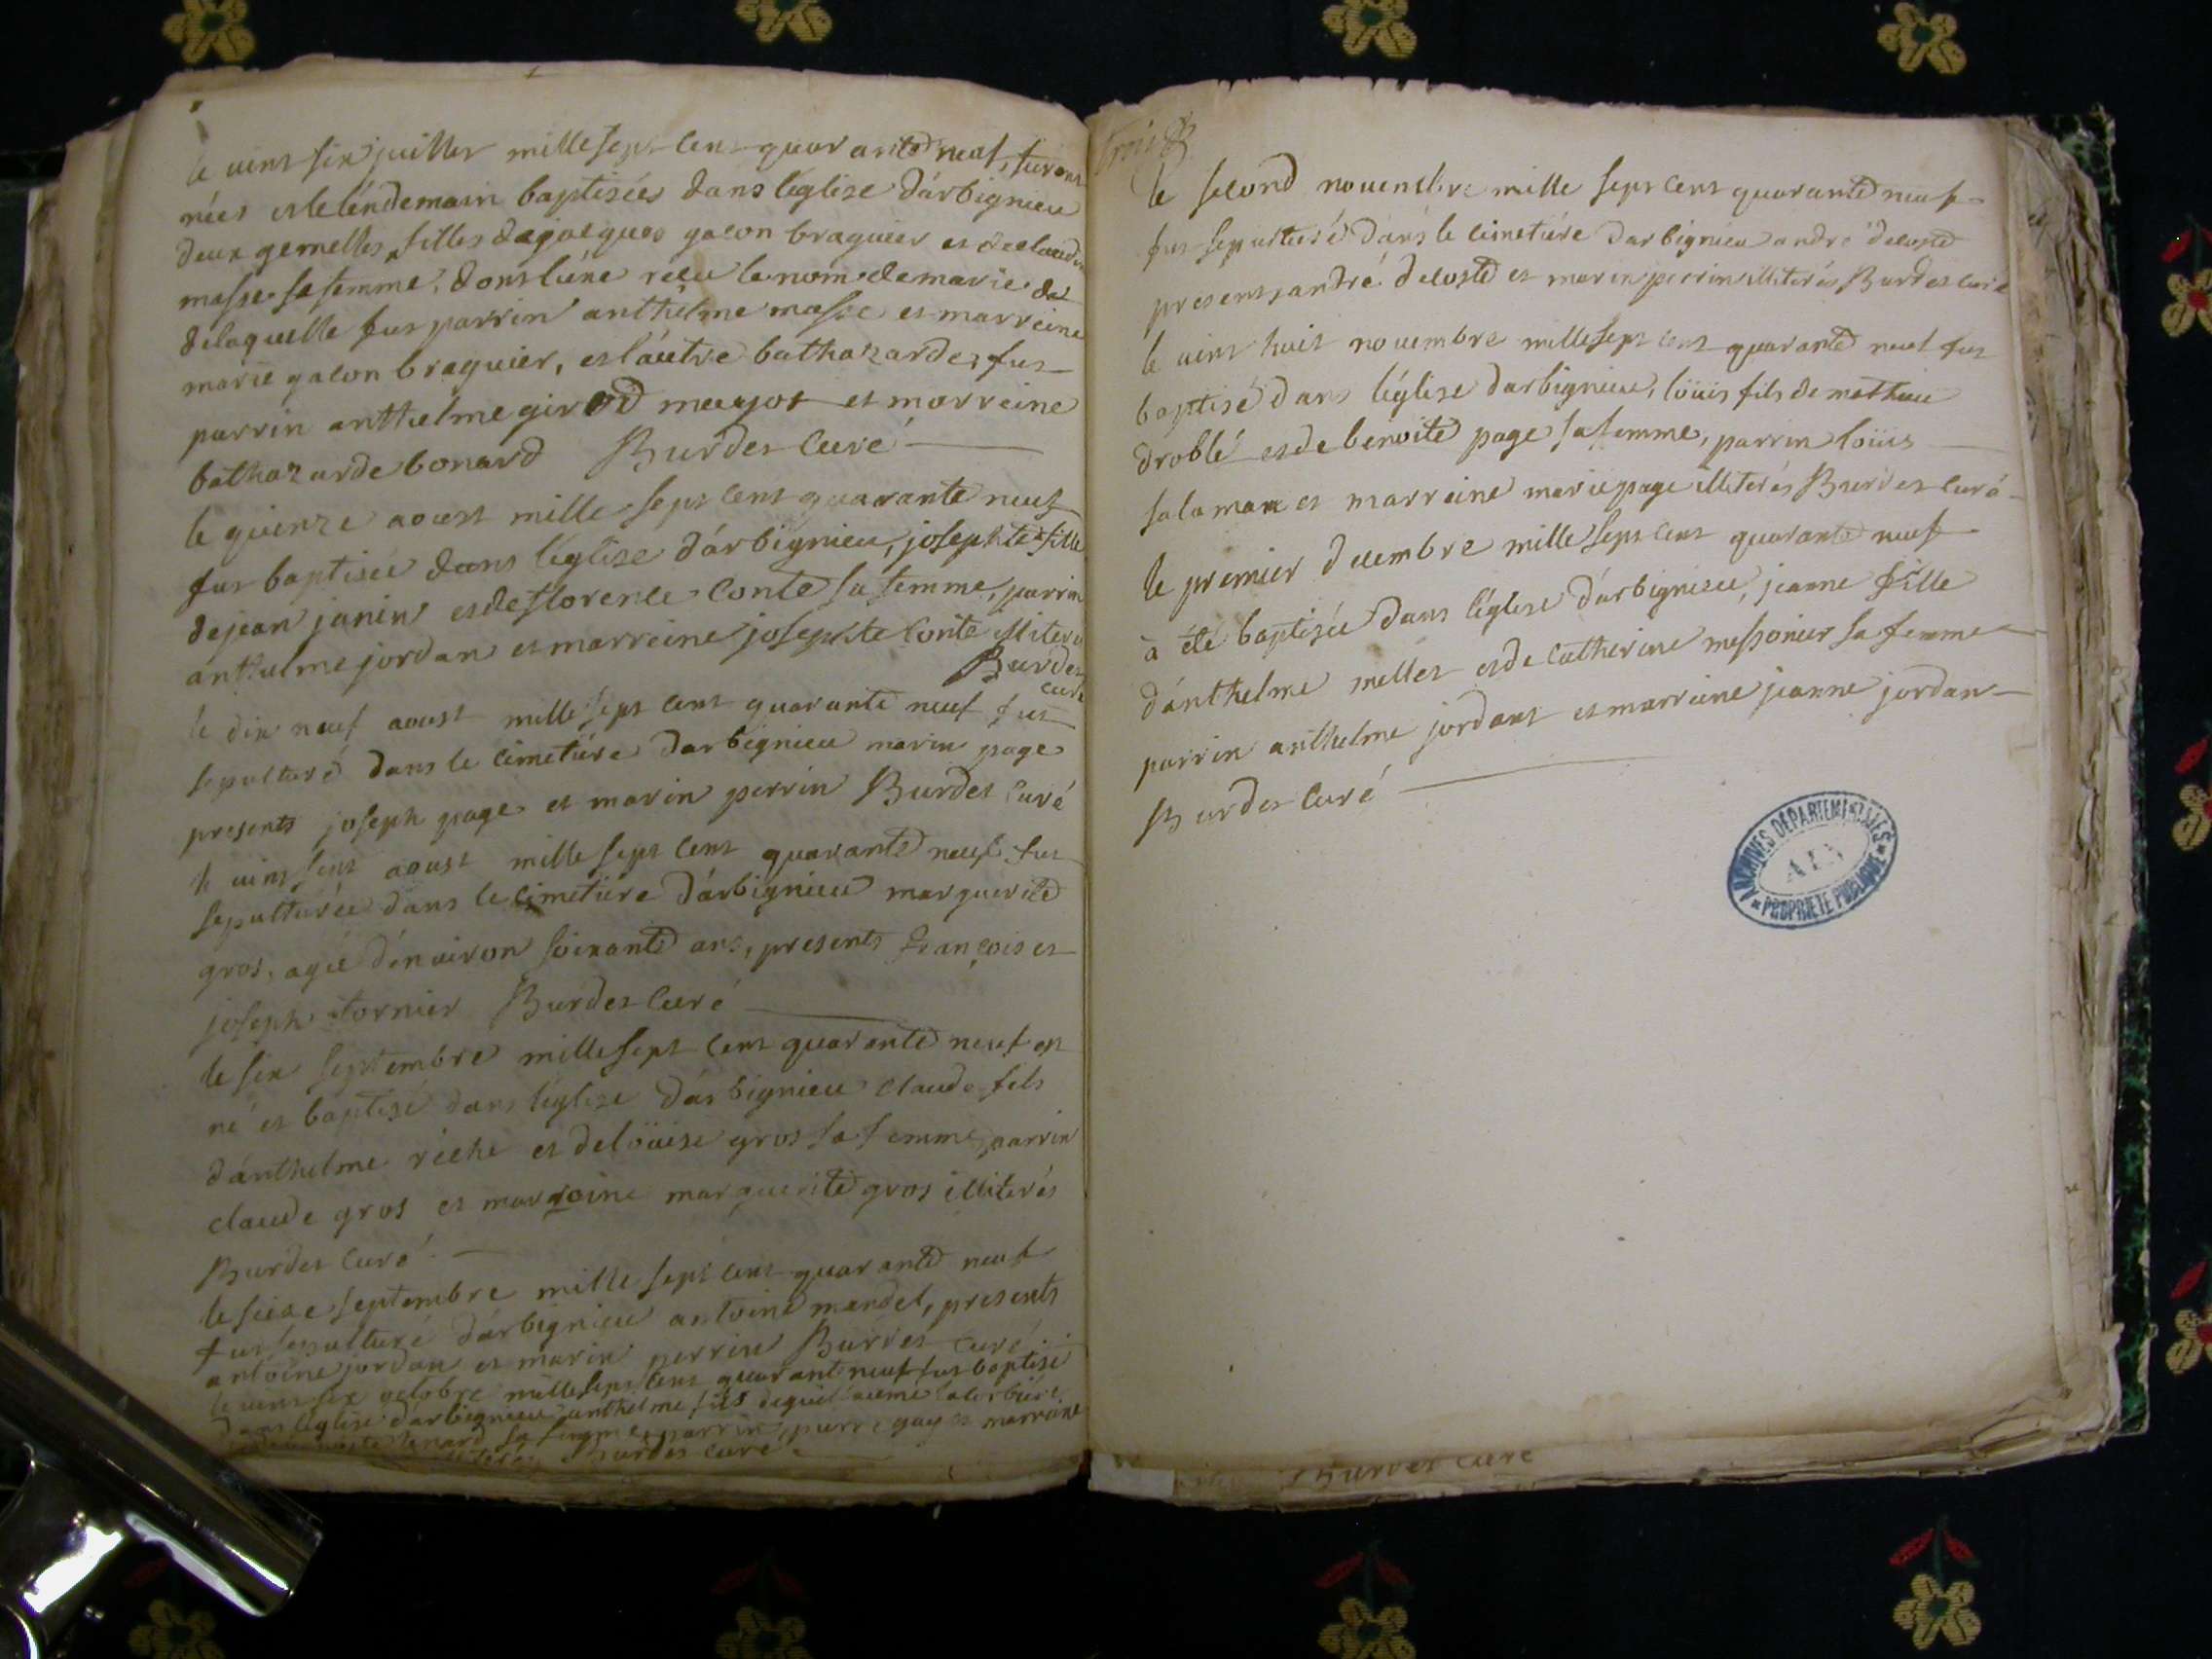 le vint six juillet mille sept cent quarante neuf, furent
nées et le léndemain baptisées dans l'église d'arbignieu
deux gemelles, filles de jacques galon braguier et de claudine
masse sa femme, dont l'une reçu le nom de marie de
de laquelle fut parrin anthelme masse et marreine
marie galon braguier, et l'autre bathazarde, fut
parrin anthelme girod mayot et marreine
bathazarde bonard Burdet Curé
le quinze aoust mille sept cent quarante neuf
fut baptisée dans l'église d'arbignieu, josephte fille
de jean janin et de florence Conte sa femme, parrin
anthelme jordan et marreine josephte Conte illiterés
Burdet
curé
le dix neuf aoust mille sept cent quarante neuf fut
sepulturé dans le cimetiére darbignieu marin page
presents joseph page et marin perrin Burdet Curé
le vint sept aoust mille sept cent quarante neuf fut
sepulturée dans le cimetiére d'arbignieu marguerite
gros, agée d'environ soixante ans, presents françois et
joseph tornier Burdet Curé
le six septembre mille sept cent quarante neuf est
né et baptisé dans l'église d'arbignieu claude fils
d'anthelme riche et de loüise gros sa femme, parrin
claude gros et marreine marguerite gros illiterés
Burdet Curé
le seize septembre mille sept cent quarante neuf
fut sepulturé d'arbignieu antoine mandel, presents
antoine jordan et marin perrin Burdet Curé
le vint six octobre mille sept cent quarante neuf fut baptisé
dans l'église d'arbignieu anthelme, fils de guillaume
bonard sa femme, parrin, pierre gay et marreine
Burdet curé
trois
le second novembre mille sept cent quarante neuf
fut sepulturé dans le cimetiére darbignieu andré deloste
present, andré deloste et marin perrin illiterés Burdet Curé
le vint huit novembre mille sept cent quarante neuf fut
baptisé dans l'église darbignieu, loüis fils de mathieu
droblé et de benoite page sa femme, parrin loüis
salaman et marreine marie page illiterés Burdet Curé
le premier decembre mille sept cent quarante neuf
à été baptisée dans l'église d'arbignieu, jeanne fille
d'anthelme mellet et de catherine messonier sa femme
parrin anthelme jordant et marreine jeanne jordan
Burdet Curé
ARCHIVES DEPARTEMENTALES
AIN
* PROPRIETE PUBLIQUE *
Burdet curé